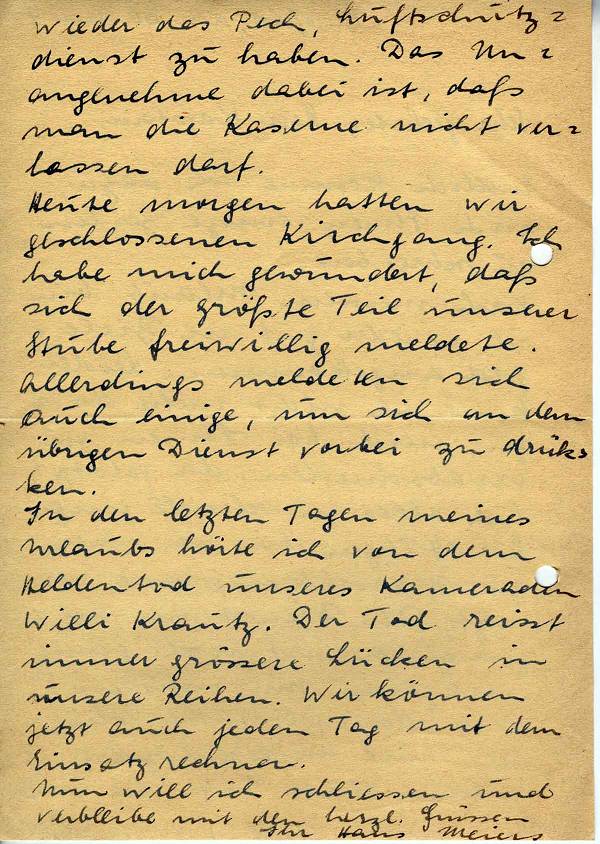 wieder das Pech, Luftschutz=
dienst zu haben. Das Un=
angenehme dabei ist, daß
man die Kaserne nicht ver=
lassen darf.
Heute morgen hatten wir
geschlossenen Kirchgang. Ich
habe mich gewundert, daß
sich der größte Teil unserer
Stube freiwillig meldete.
Allerdings meldeten sich
auch einige, um sich an dem
übrigen Dienst vorbei zu drük=
ken.
In den letzten Tagen meines
Urlaubs hörte ich von dem
Heldentod unseres Kameraden
Willi Krautz. Der Tod reisst
immer grössere Lücken in
unsere Reihen. Wir können
jetzt auch jeden Tag mit dem
Einsatz rechnen.
Nun will ich schliessen und
verbleibe mit den herzl. Grüssen
Ihr Hans Meiers